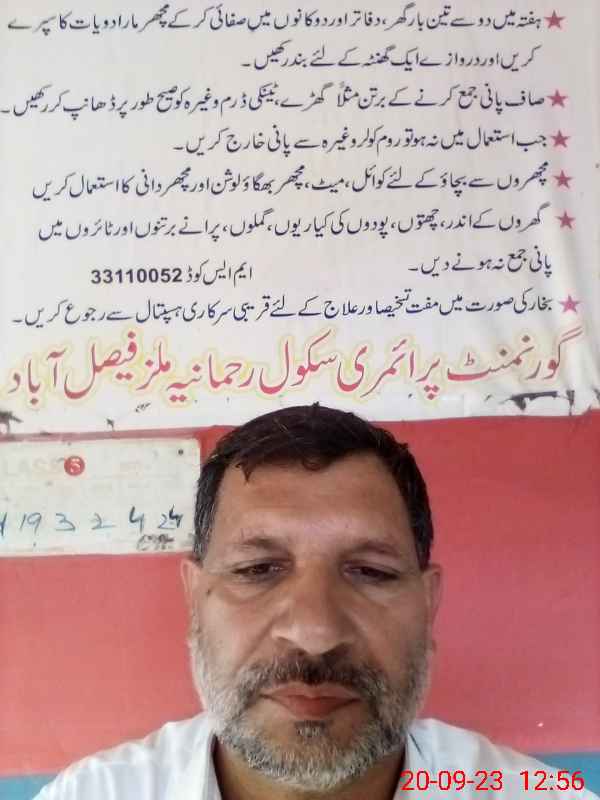 ★ ہفتہ میں دو سے تین بار گھر، دفاتر اور دوکانوں میں صفائی کر کے مچھر مار ادویات کا سپرے
کریں اور دروازے ایک گھنٹہ کے لئے بند رکھیں۔
★ صاف پانی جمع کرنے کے برتن مثلاً گھڑے، ٹینکی ڈرم وغیرہ کو صحیح طور پر ڈھانپ کر رکھیں۔
★ جب استعمال میں نہ ہو تو روم کولر وغیرہ سے پانی خارج کریں۔
★ مچھروں سے بچاؤ کے لئے کوائل، میٹ، مچھر بھگاؤ لوشن اور مچھر دانی کا استعمال کریں
★ گھروں کے اندر، چھتوں، پودوں کی کیاریوں، گملوں، پرانے برتنوں اور ٹائروں میں
پانی جمع نہ ہونے دیں۔ ایم ایس کوڈ 33110052
★ بخار کی صورت میں مفت تشخیص اور علاج کے لئے قریبی سرکاری ہسپتال سے رجوع کریں۔
گورنمنٹ پرائمری سکول رحمانیہ ملز فیصل آباد
CLASS 5
19 3 2 4 24
20-09-23 12:56